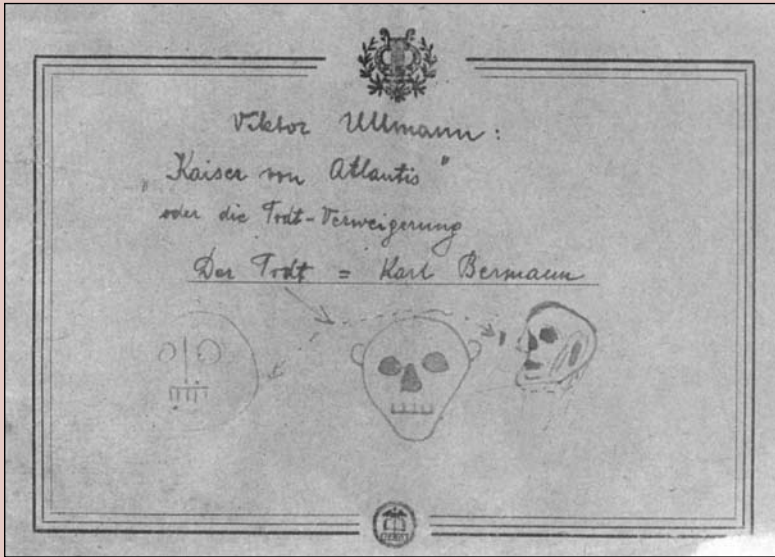 Viktor Ullmann:
„Kaiser von Atlantis"
oder die Todt-Verweigerung
Der Todt = Karl Bermann